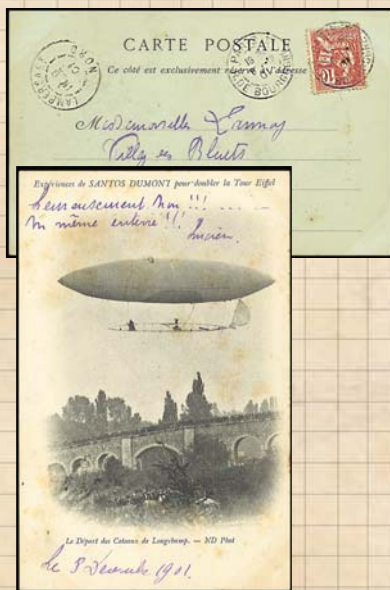 CARTE POSTALE
Ce côté est exclusivement réservé à l'adresse
NORD
PARIS
10
Mesdemoiselles Lannoy
Villa des Bluets
Expériences de SANTOS DUMONT pour doubler la Tour Eiffel
heureusement non !!!
ni même enterré !!!
Lucien
Le Départ des Coteaux de Longchamp. — ND Phot
Le 3 Décembre 1901.